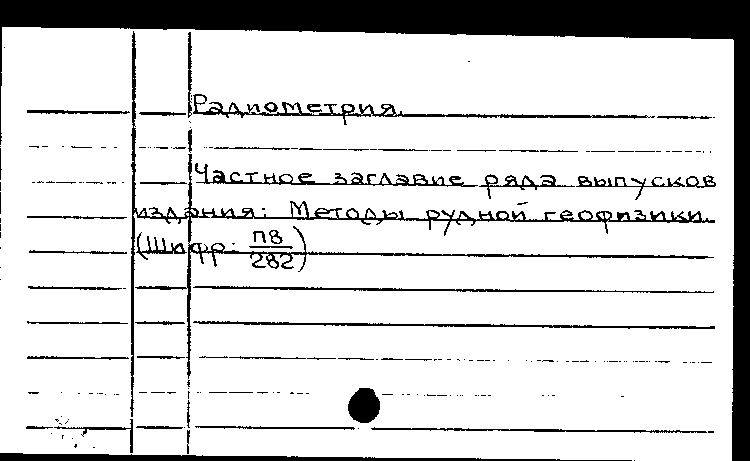 Радиометрия.
Частное заглавие ряда выпусков
издания: Методы рудной геофизики.
(Шифр: П8/282)